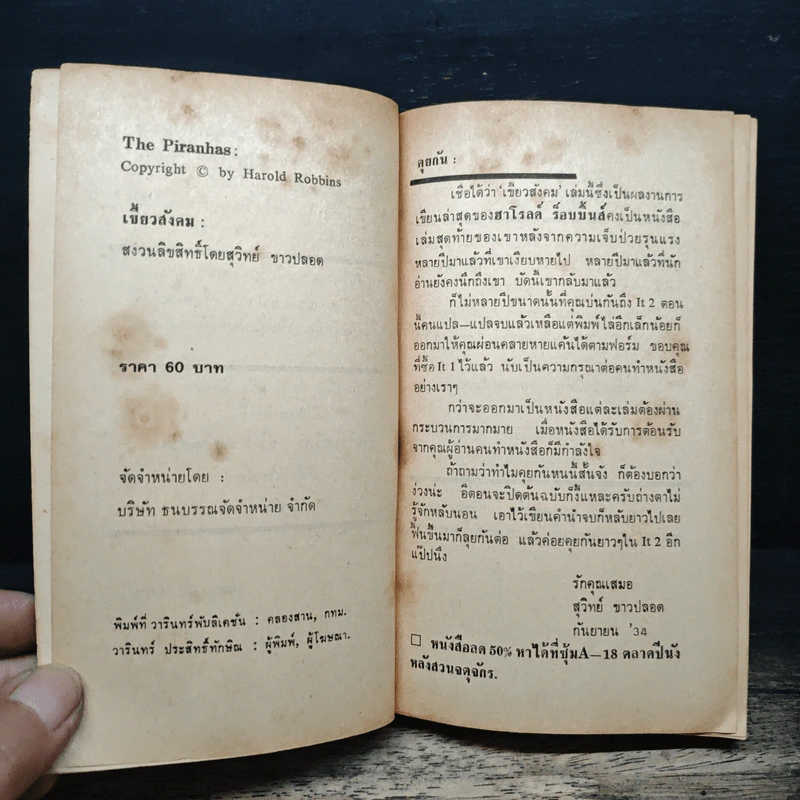 The Piranhas:
Copyright © by Harold Robbins
เขี้ยวสังคม :
สงวนลิขสิทธิ์โดยสุวิทย์ ขาวปลอด
ราคา 60 บาท
จัดจำหน่ายโดย :
บริษัท ธนบรรณจัดจำหน่าย จำกัด
พิมพ์ที่ วารินทร์พับลิเคชั่น : คลองสาน, กทม.
วารินทร์ ประสิทธิ์ทักษิณ : ผู้พิมพ์, ผู้โฆษณา.
คุยกัน :
เชื่อได้ว่า ‘เขี้ยวสังคม’ เล่มนี้ซึ่งเป็นผลงานการ
เขียนล่าสุดของฮาโรลด์ ร็อบบิ้นส์คงเป็นหนังสือ
เล่มสุดท้ายของเขาหลังจากความเจ็บป่วยรุนแรง
หลายปีมาแล้วที่เขาเงียบหายไป หลายปีมาแล้วที่นัก
อ่านยังคงนึกถึงเขา บัดนี้เขากลับมาแล้ว
ก็ไม่หลายปีขนาดนั้นที่คุณบ่นกันถึง It 2 ตอน
นี้คนแปล—แปลจบแล้วเหลือแต่พิมพ์ไล่อีกเล็กน้อยก็
ออกมาให้คุณผ่อนคลายหายแค้นได้ตามฟอร์ม ขอบคุณ
ที่ซื้อ It 1 ไว้แล้ว นับเป็นความกรุณาต่อคนทำหนังสือ
อย่างเราๆ
กว่าจะออกมาเป็นหนังสือแต่ละเล่มต้องผ่าน
กระบวนการมากมาย เมื่อหนังสือได้รับการต้อนรับ
จากคุณผู้อ่านคนทำหนังสือก็มีกำลังใจ
ถ้าถามว่าทำไมคุยกันหนนี้สั้นจัง ก็ต้องบอกว่า
ง่วงน่ะ อีตอนจะปิดต้นฉบับก็งี้แหละครับถ่างตาไม่
รู้จักหลับนอน เอาไว้เขียนคำนำจบก็หลับยาวไปเลย
ฟื้นขึ้นมาก็ลุยกันต่อ แล้วค่อยคุยกันยาวๆใน It 2 อีก
แป๊ปนึง
รักคุณเสมอ
สุวิทย์ ขาวปลอด
กันยายน '34
□ หนังสือลด 50% หาได้ที่ซุ้มA—18 ตลาดปีนัง
หลังสวนจตุจักร.